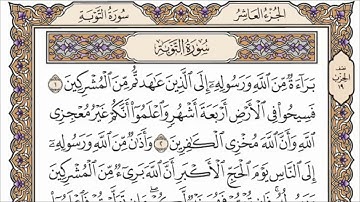 الجزء العاشر
سورة التوبة
سورة التوبة
بَرَآءَةٌ مِّنَ ٱللَّهِ وَرَسُولِهِۦٓ إِلَى ٱلَّذِينَ عَٰهَدتُّم مِّنَ ٱلْمُشْرِكِينَ ١
فَسِيحُوا۟ فِى ٱلْأَرْضِ أَرْبَعَةَ أَشْهُرٍ وَٱعْلَمُوٓا۟ أَنَّكُمْ غَيْرُ مُعْجِزِى
ٱللَّهِ وَأَنَّ ٱللَّهَ مُخْزِى ٱلْكَٰفِرِينَ ٢ وَأَذَٰنٌ مِّنَ ٱللَّهِ وَرَسُولِهِۦٓ
إِلَى ٱلنَّاسِ يَوْمَ ٱلْحَجِّ ٱلْأَكْبَرِ أَنَّ ٱللَّهَ بَرِىٓءٌ مِّنَ ٱلْمُشْرِكِينَ
الحزب
١٩